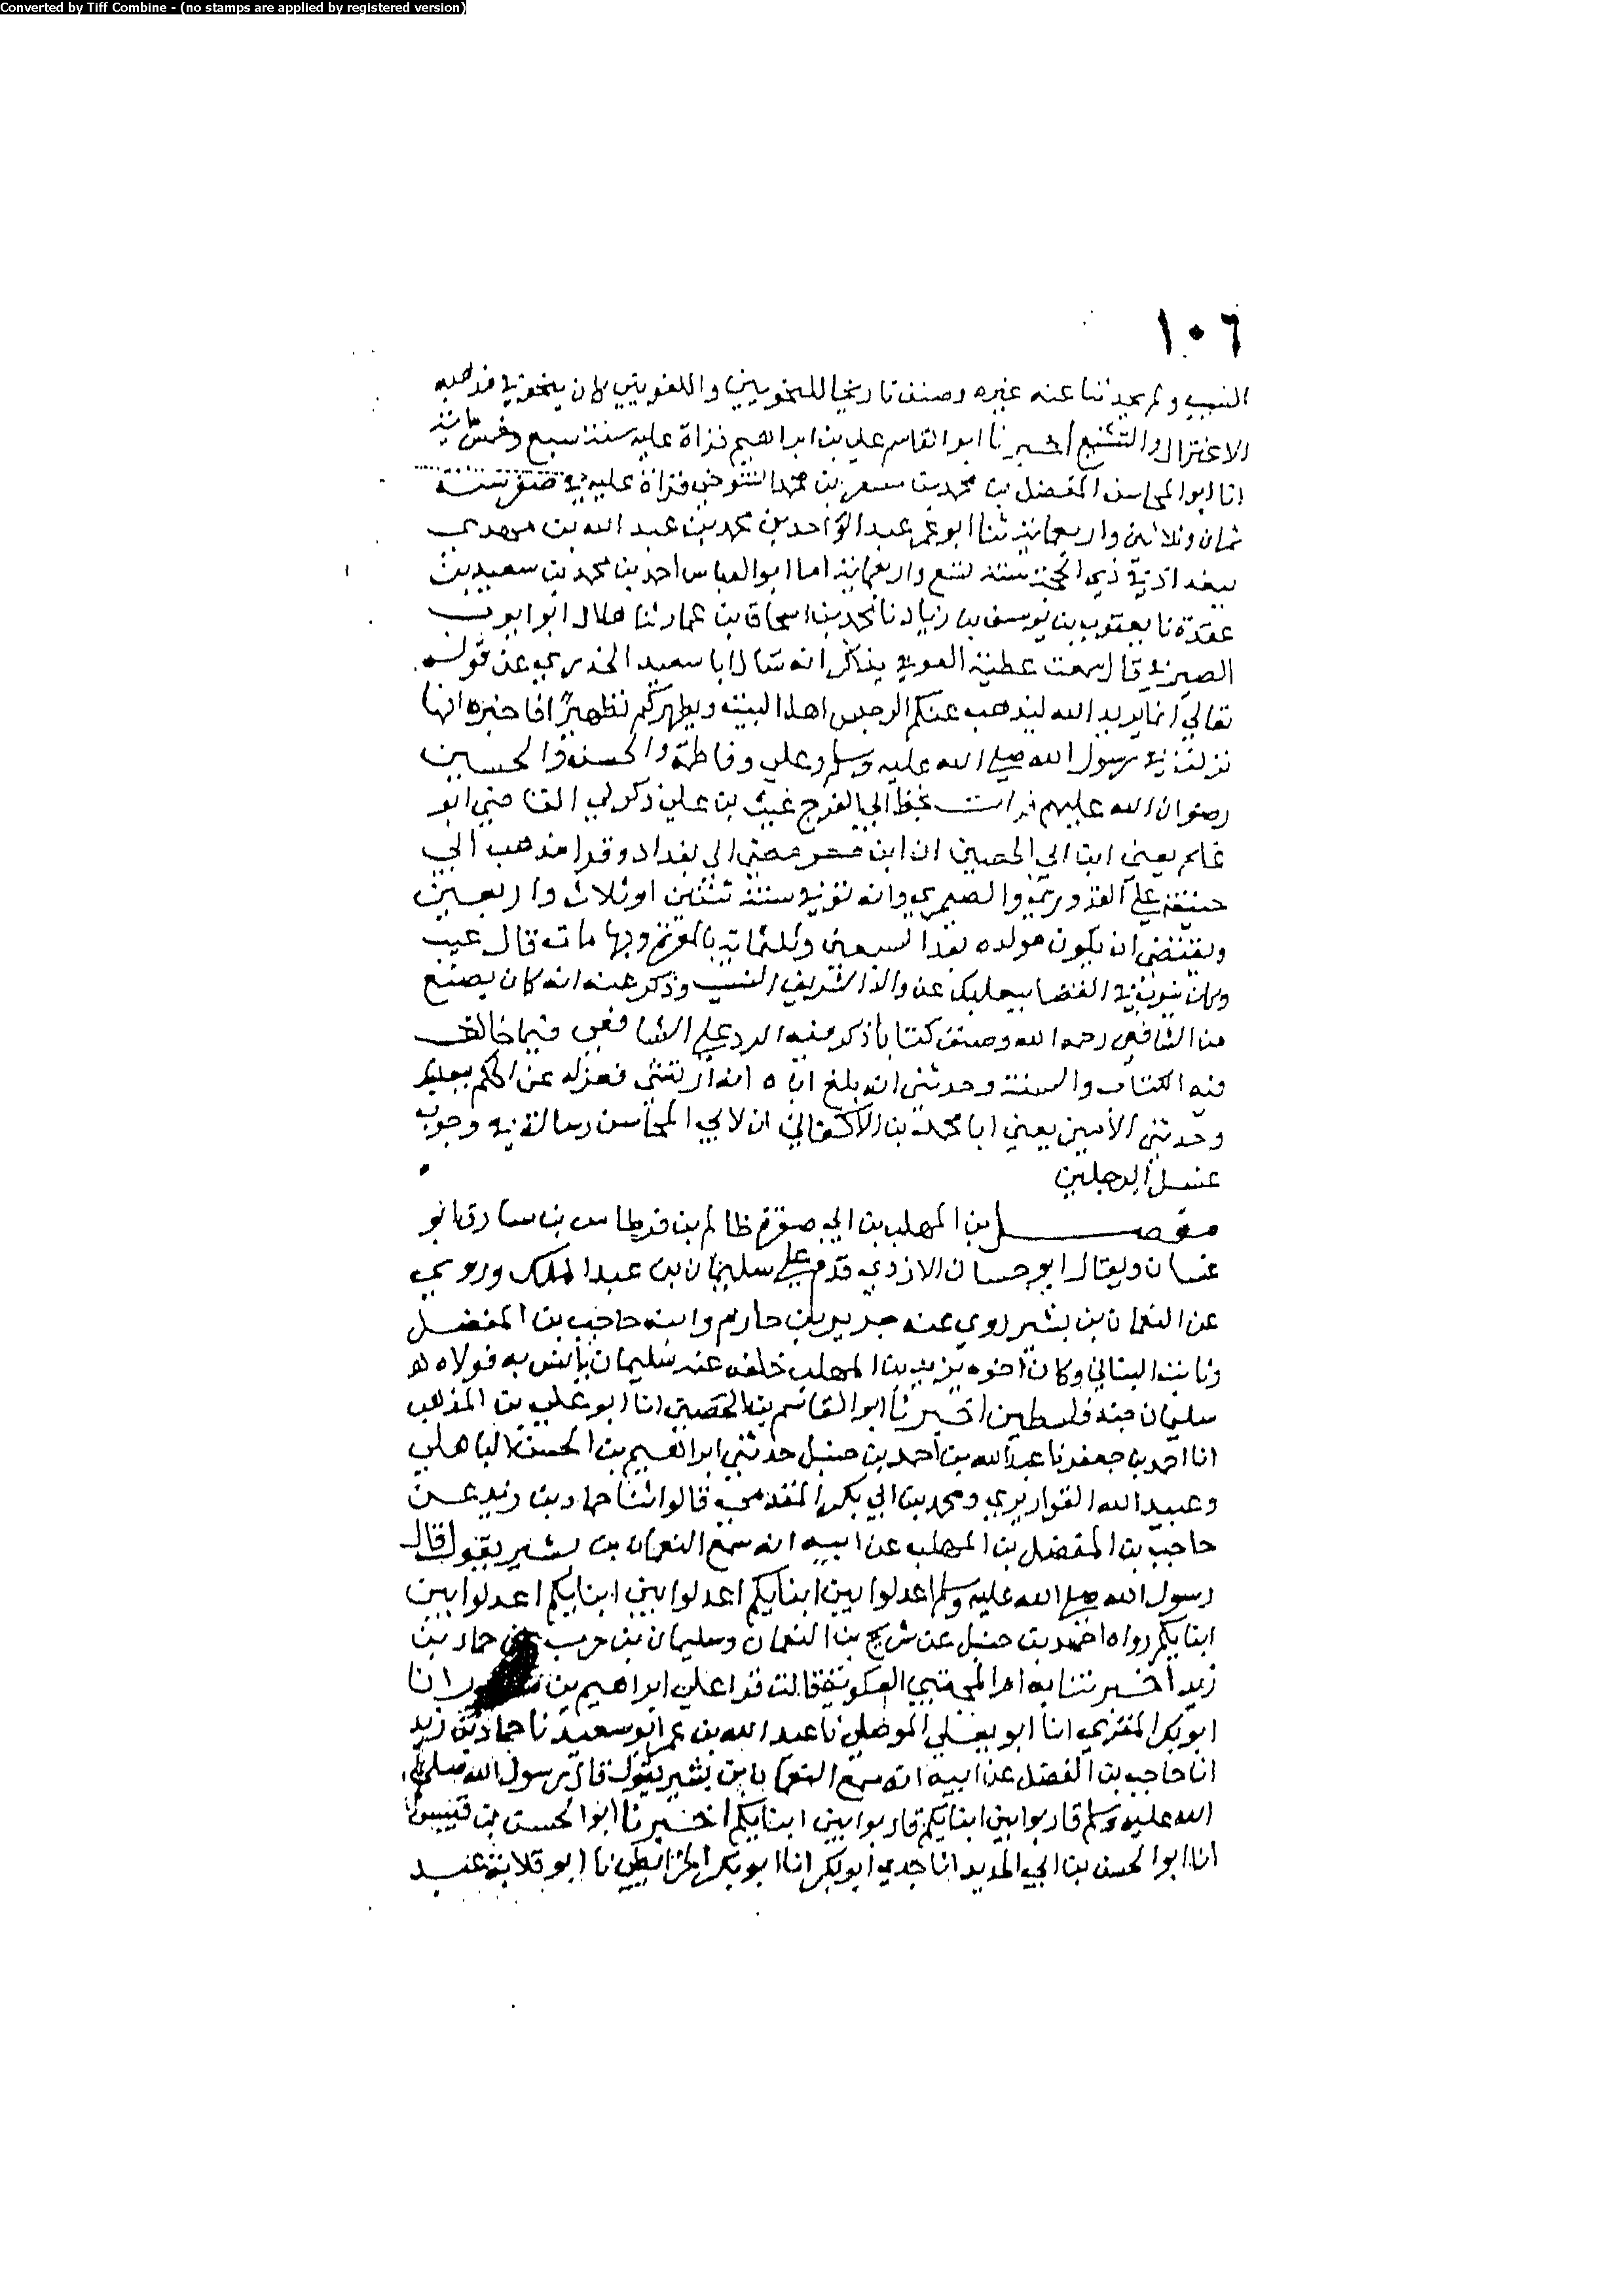 Converted by Tiff Combine - (no stamps are applied by registered version)
١٠٦
النسيب ولم يحدثنا عنه غيره وصنف تاريخا للنحويين واللغويين كان ينحو في مذهبه
الاعتزال والتشيع اخبرنا ابو القاسم علي بن ابراهيم قراة عليه سنة سبع وخمسمائة
انا ابو المحاسن المفضل بن محمد بن مسعر بن محمد التنوخي قراة عليه في صفر سنة
ثمان وثلاثين واربعمائة ثنا ابو عمر عبد الواحد بن محمد بن عبد الله بن مهدي
ببغداد في ذي الحجة سنة تسع واربعمائة اما ابو العباس احمد بن محمد بن سعيد بن
عقدة نا يعقوب بن يوسف بن زياد نا محمد بن اسحاق بن عمار ثنا هلال ابو ايوب
الصيرفي قال سمعت عطية العوفي يذكر انه سال ابا سعيد الخدري عن قوله
تعالي انما يريد الله ليذهب عنكم الرجس اهل البيت ويطهركم تطهيرا فاخبره انها
نزلت في رسول الله صلى الله عليه وسلم وعلي وفاطمة والحسن والحسين
رضوان الله عليهم قرات بخط ابي الفرج غيث بن علي ذكر لي القاضي ابو
غانم يعني ابن ابي الحصين ان ابن مسعر مضى الي بغداد وقرا مذهب ابي
حنيفة علي القدوري والصيمري وانه توفي سنة ثنتين او ثلاث واربعين
ويقتضي ان يكون مولده بعد السبعين وثلثمائة بالمعرة وبها مات قال غيث
وكان ينوب في القضا ببعلبك عن والد الشريف النسيب وذكر عنه انه كان يضع
من الشافعي رحمه الله وصنف كتابا ذكر فيه الرد علي الشافعي فيما خالف
فيه الكتاب والسنة وحدثني انه بلغ اباه انه ارتشى فعزله عن الحكم ببعلبك
وحدثني الأمين يعني ابا محمد بن الأكفاني ان لابي المحاسن رسالة في وجوب
غسل الرجلين
مفضل بن المهلب بن ابي صفرة ظالم بن قرطاس بن سارق ابو
غسان ويقال ابو حسان الازدي قدم علي سليمان بن عبد الملك وروي
عن النعمان بن بشير روي عنه جرير بن حازم وابنه حاجب بن المفضل
وثابت البناني وكان اخوه يزيد بن المهلب خلفه عند سليمان يأنس به فولاه
سليمان جند فلسطين اخبرنا ابو القاسم بن الحصين انا ابو علي بن المذهب
انا احمد بن جعفر نا عبد الله بن احمد بن حنبل حدثني ابراهيم بن الحسن الباهلي
وعبيد الله القواريري ومحمد بن ابي بكر المقدمي قالوا ثنا حماد بن زيد عن
حاجب بن المفضل بن المهلب عن ابيه انه سمع النعمان بن بشير يقول قال
رسول الله صلى الله عليه وسلم اعدلوا بين ابنايكم اعدلوا بين ابنايكم اعدلوا بين
ابنايكم رواه احمد بن حنبل عن شريح بن النعمان وسليمان بن حرب عن حماد بن
زيد اخبرتنا به ام المجتبي العلوية قالت قرا علي ابراهيم بن انا
ابو بكر المقري انا ابو يعلي الموصلي نا عبد الله بن عمر ابو سعيد نا حماد بن زيد
انا حاجب بن الفضل عن ابيه انه سمع النعمان بن بشير يقول قال رسول الله صلي
الله عليه وسلم قاربوا بين ابنايكم قاربوا بين ابنايكم اخبرنا ابو الحسن بن قبيس
انا ابو الحسن بن ابي الحديد انا جدي ابو بكر انا ابو بكر الخرايطي نا ابو قلابة عبد